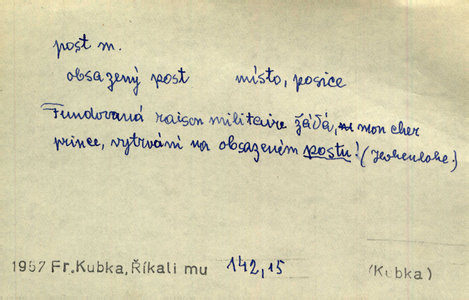 post m.
obsazený post místo, posice
Fundovaná raison militaire žádá, mon cher
prince, vytrvání na obsazeném postu! (Hohenlohe.)
1957 Fr.Kubka, Říkali mu 142,15 (Kubka)